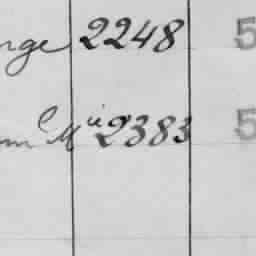 nge 2248 5
m Mie 2383 5